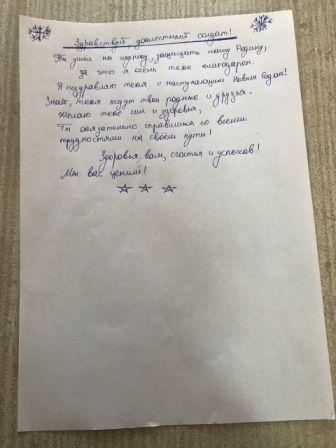 Здравствуй, доблестный солдат!
Ты ушел на службу, защищать нашу Родину,
за это я очень тебе благодарен.
Я поздравляю тебя с наступающим Новым Годом!
Знай, тебя ждут твои родные и друзья.
Желаю тебе сил и здоровья,
Ты обязательно справишься со всеми
трудностями на своём пути!
Здоровья вам, счастья и успехов!
Мы вас ценим!